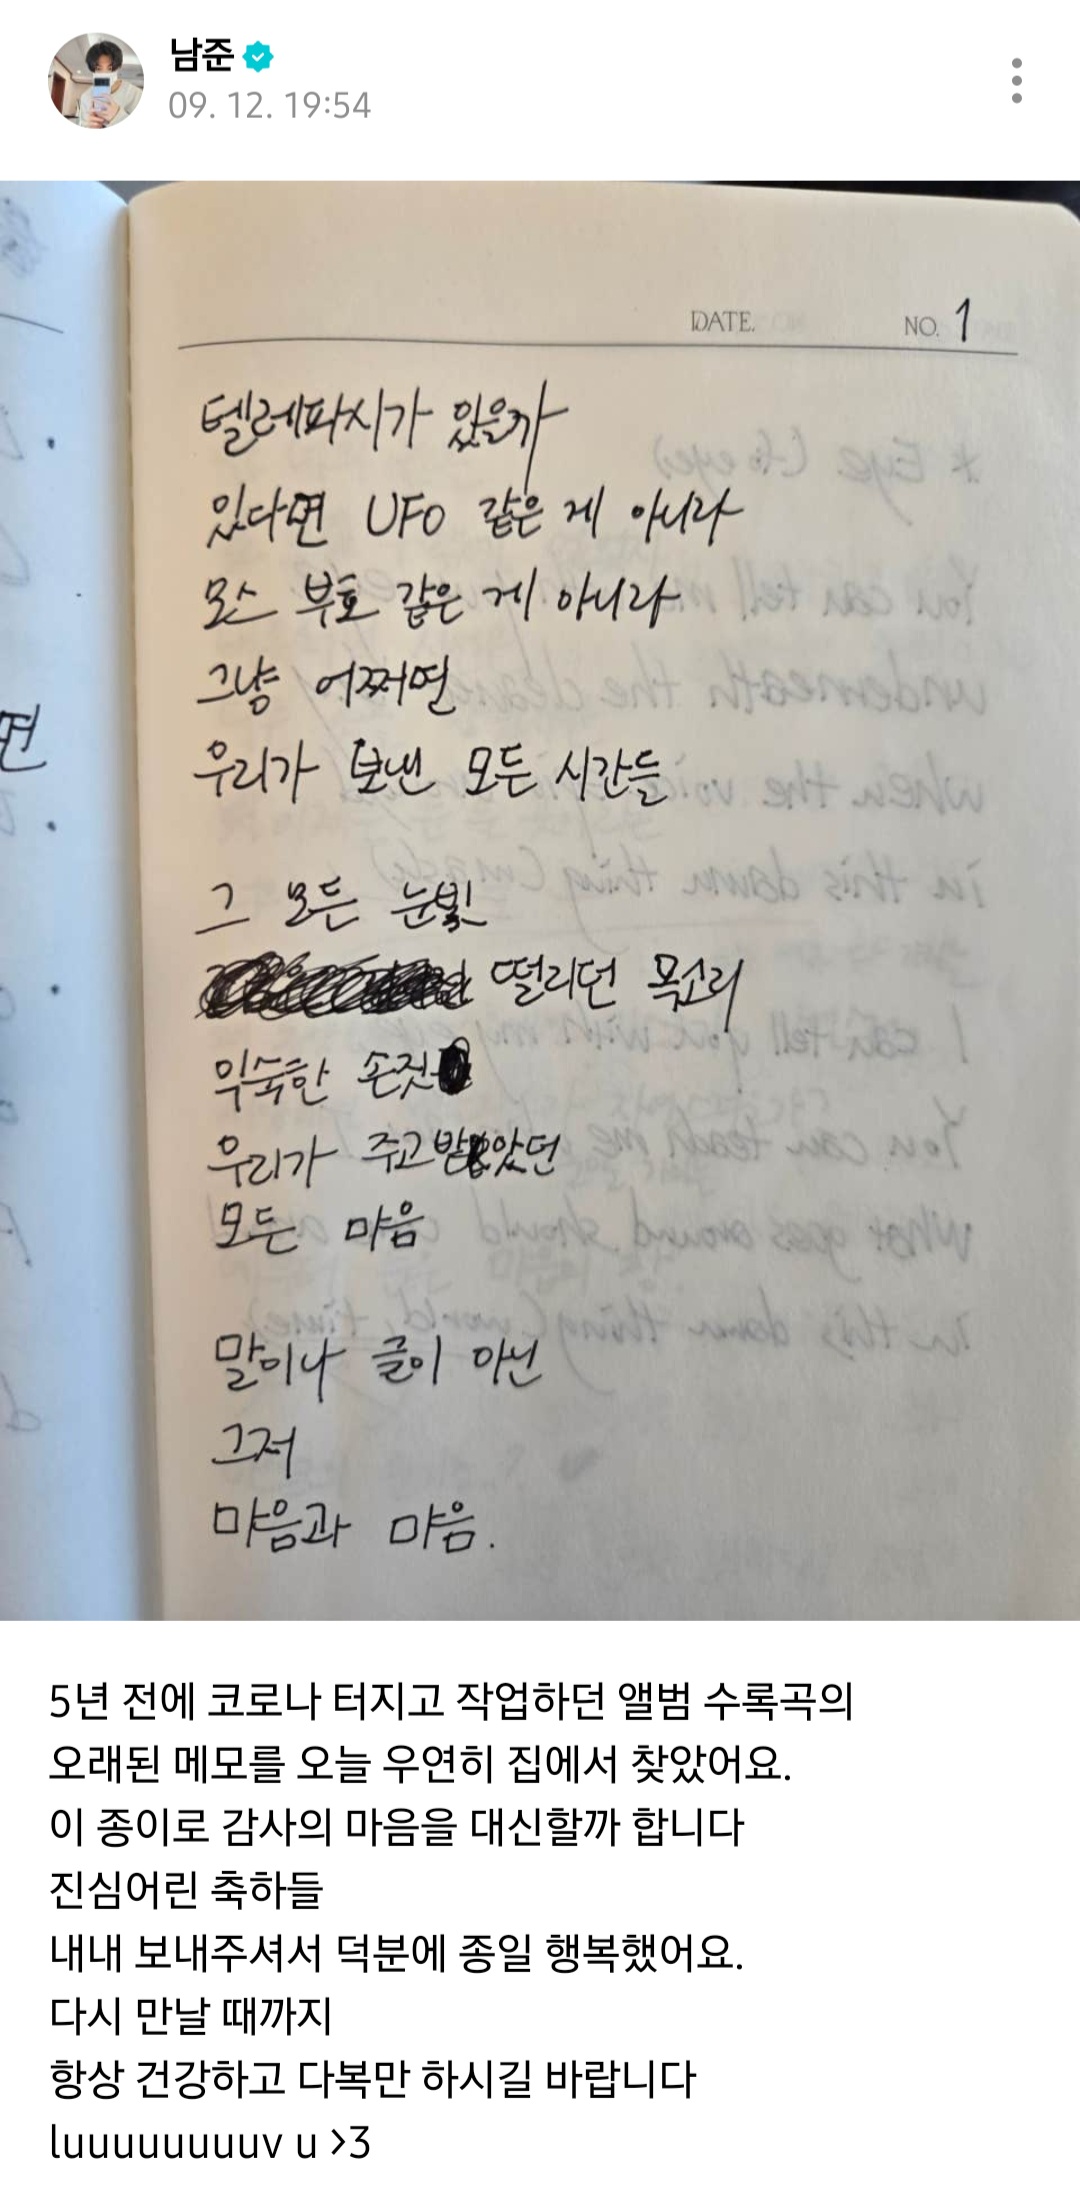 남준
09. 12. 19:54
DATE.
NO. 1
텔레파시가 있을까
있다면 UFO 같은 게 아니라
모스 부호 같은 게 아니라
그냥 어쩌면
우리가 보낸 모든 시간들
그 모든 눈빛
떨리던 목소리
익숙한 손짓
우리가 주고받았던
모든 마음
말이나 글이 아닌
그저
마음과 마음.
면
5년 전에 코로나 터지고 작업하던 앨범 수록곡의
오래된 메모를 오늘 우연히 집에서 찾았어요.
이 종이로 감사의 마음을 대신할까 합니다
진심어린 축하들
내내 보내주셔서 덕분에 종일 행복했어요.
다시 만날 때까지
항상 건강하고 다복만 하시길 바랍니다
luuuuuuuuv u >3